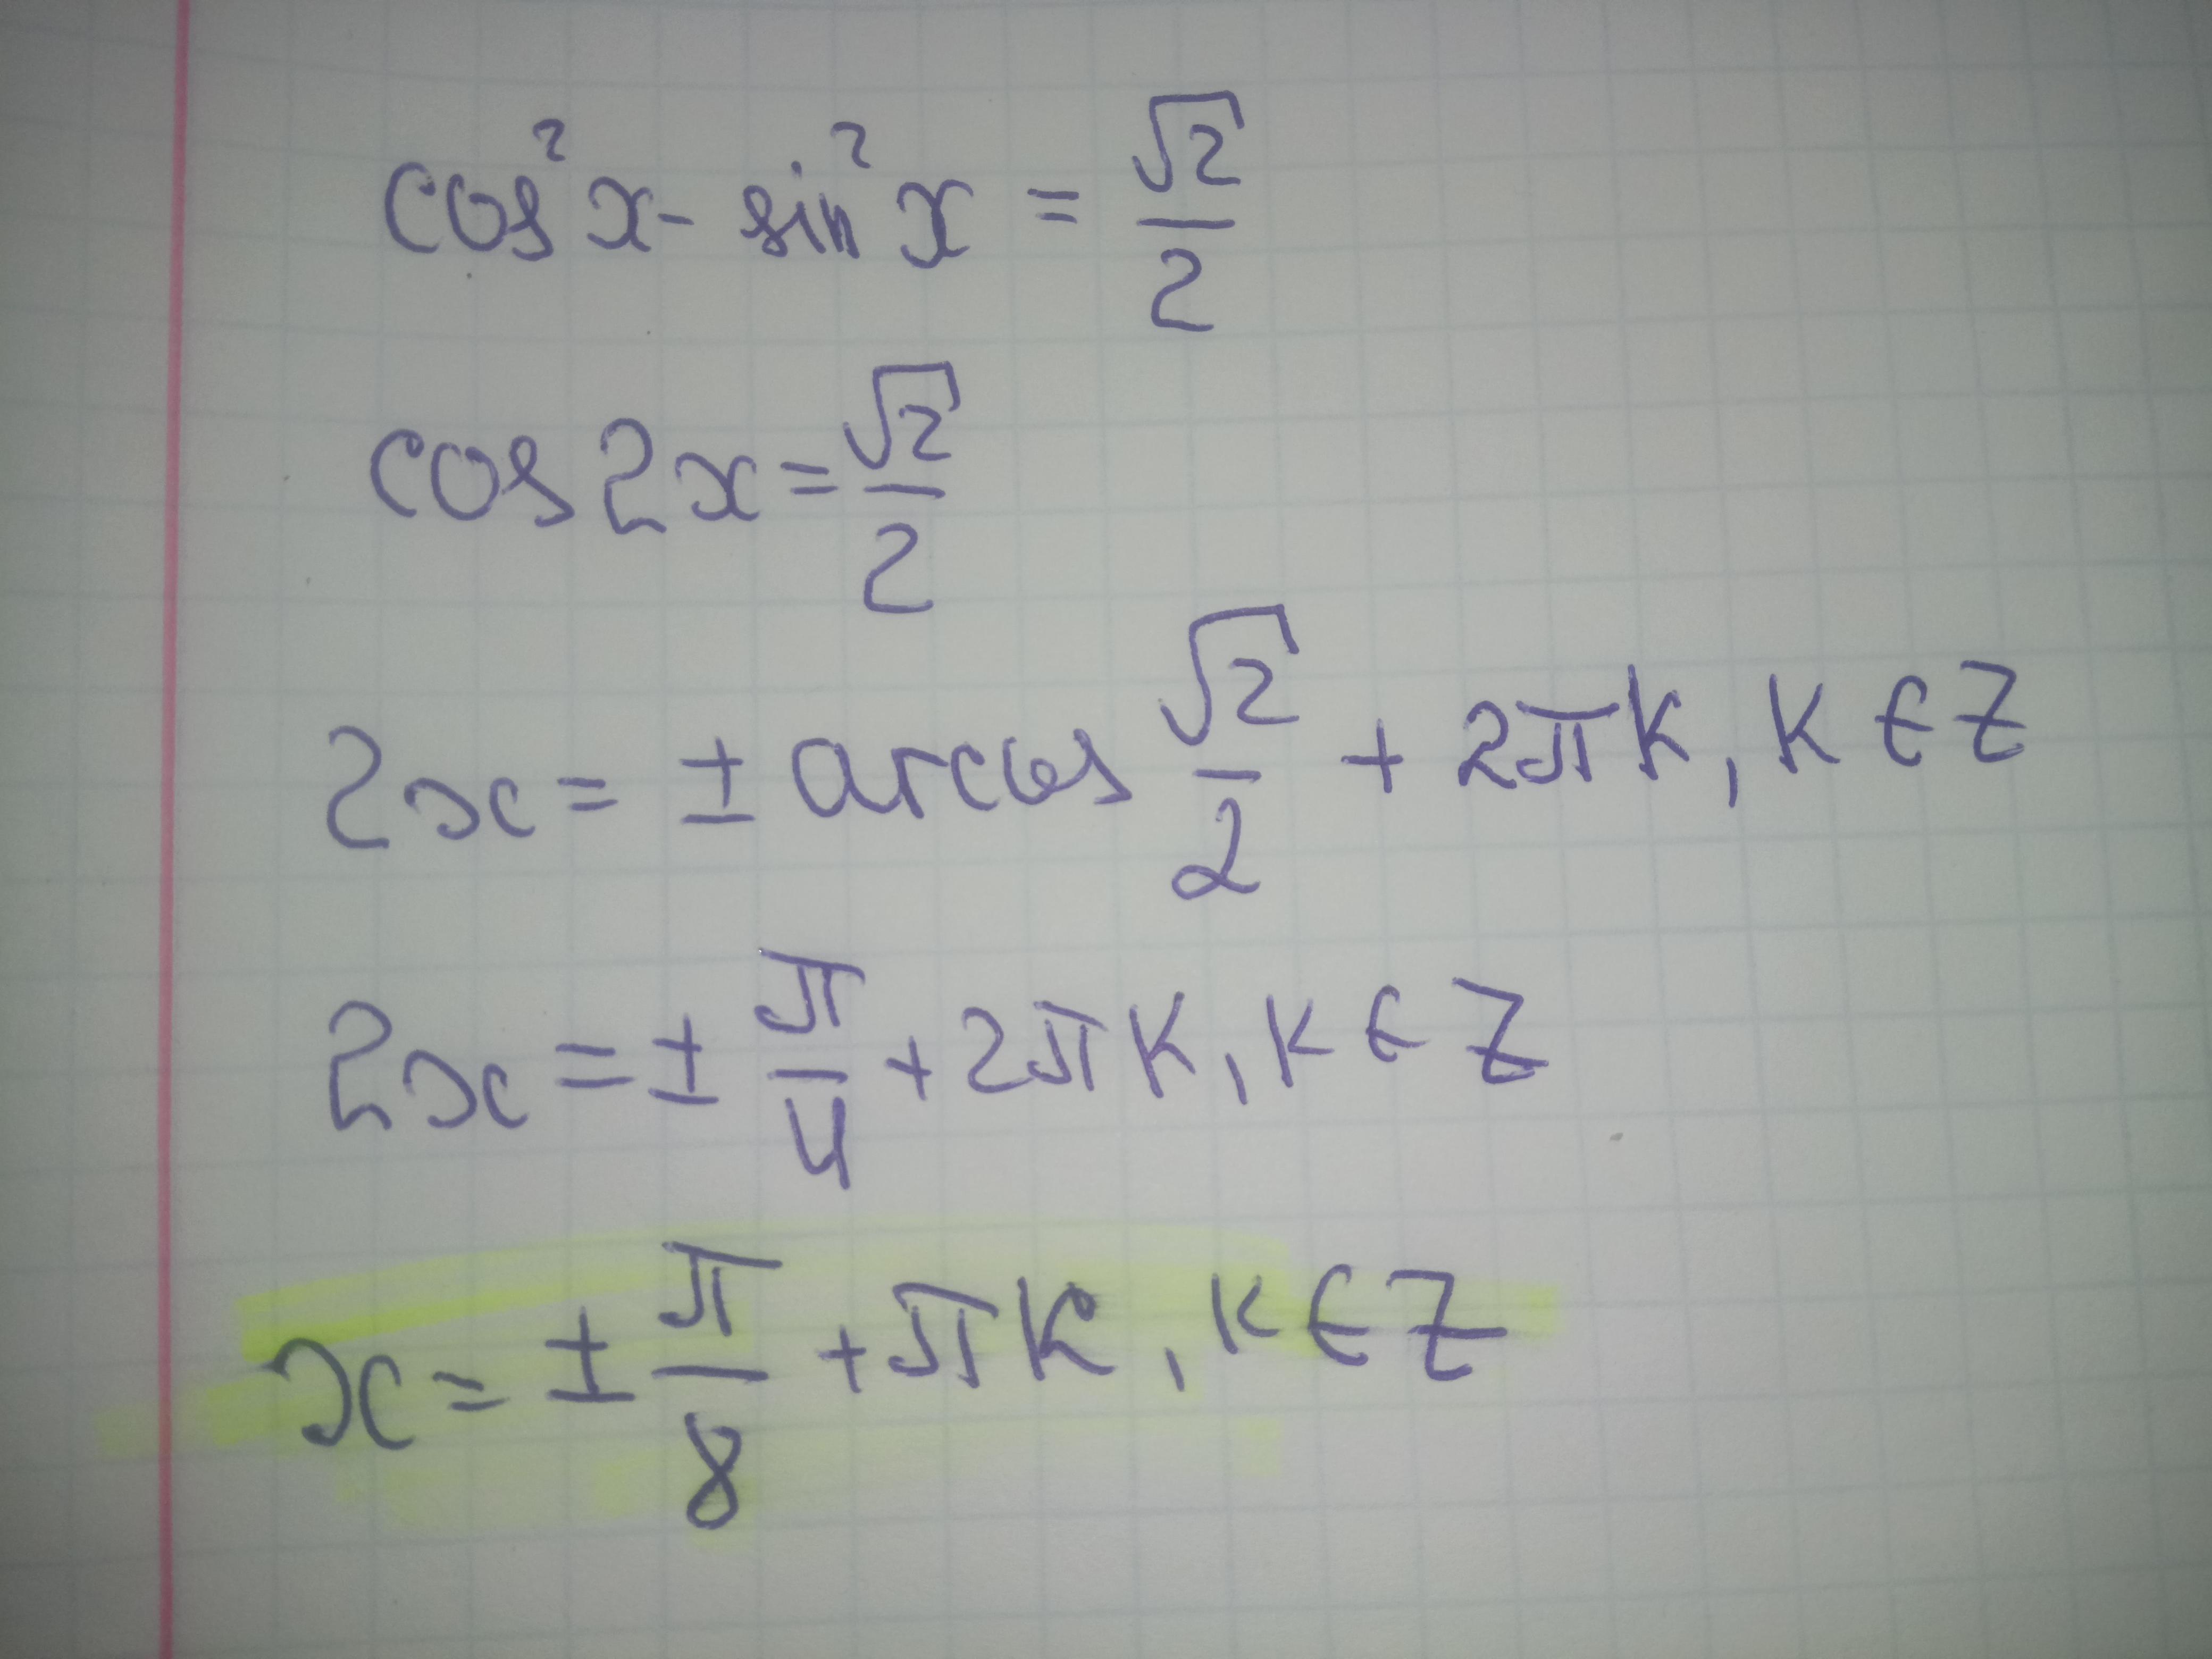 cos²x - sin²x = √2/2
cos2x = √2/2
2x = ± arccos √2/2 + 2πk, k ∈ Z
2x = ± π/4 + 2πk, k ∈ Z
x = ± π/8 + πk, k ∈ Z